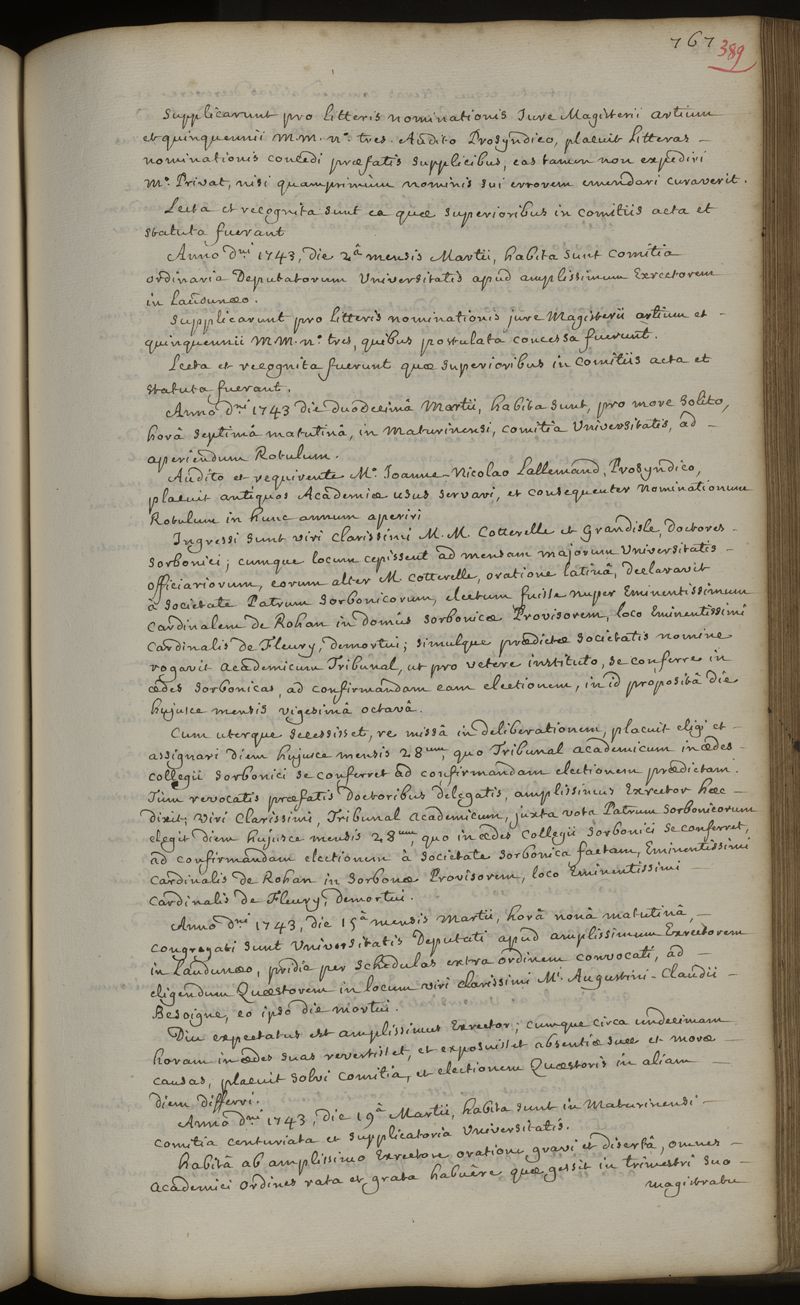 767
389
Supplicarunt pro Litteris nominationis Jure Magisterii artium
et quinquennii M.M. n.° tres. Audito Prosyndico, placuit Litteras –
nominationis concedi præfatis supplicibus, eas tamen non expediri
M.° Privat, nisi quamprimùm nominis sui errorem emendari curaverit.
Lecta et recognita sunt ea quæ superioribus in comitiis acta et
statuta fuerant
Anno dni 1743, die 2â mensis Martii, habita sunt Comitia
ordinaria Deputatorum Universitatis apud amplissimum Exrectorem
in Laudunæo.
Supplicarunt pro Litteris nominationis jure Magisterii artium et –
quinquennii M.M. n.° tres, quibus postulata concessa fuerunt.
Lecta et recognita fuerunt quæ superioribus in Comitiis acta et
statuta fuerant.
Anno dni 1743 die duodecimâ Martii, habita sunt, pro more solito,
horâ septimâ matutinâ, in Maturinensi, comitia Universitatis, ad –
aperiendum Rotulum.
Audito et requirente M.° Joanne-Nicolao Lallemand, Prosyndico,
placuit antiquos Academiæ usus servari, et consequenter nominationum
Rotulum in hunc annum aperiri
Ingressi sunt viri clarissimi M.M. Cotterelle et Grandisle, doctores –
Sorbonici; cumque locum cepissent ad mensam majorum Universitatis –
officiariorum, eorum alter M. Cotterelle, oratione latinâ, declaravit
à societate Patrum Sorbonicorum, electum fuisse nuper Eminentissimum
Cardinalem de Rohan in domûs Sorbonicæ Provisorem, loco Eminentissimi
Cardinalis de Fleury, demortui; simulque prædictæ societatis nomine
rogavit academicum Tribunal, ut pro vetere instituto, se conferre in
ædes Sorbonicas, ad confirmandam eam electionem, in id propositâ die
hujusce mensis vigesimâ octavâ.
Cum uterque secessisset, re missâ in deliberationem, placuit eligi et –
assignari diem hujusce mensis 28um, quo Tribunal academicum in ædes –
collegii Sorbonici se conferret ad confirmandam electionem prædictam.
Tùm revocatis præfatis doctoribus delegatis, amplissimus Exrector hæc –
dixit; Viri Clarissimi, Tribunal academicum, juxta vota Patrum Sorbonicorum
elegit diem hujusce mensis 28um, quo in ædes Collegii Sorbonici se conferret,
ad confirmandam electionem à societate Sorbonica factam, Eminentissimi
Cardinalis de Rohan in Sorbonæ Provisorem, loco Eminentissimi –
Cardinalis de Fleury, demortui.
Anno dni 1743, die 15â mensis Martii, horâ nonâ matutinâ, –
congregati sunt Universitatis Deputati apud amplissimum Exrectorem
in Laudunæo, pridie per schedulas extra ordinem convocati, ad –
eligendum Quæstorem in locum viri clarissimi M.i Augustini-Claudii –
Besoigne, eo ipso die mortui.
Diu expectatus est amplissimus Exrector; cumque circa undecimam
horam in ædes suas revertisset, et exposuisset absentiæ suæ et moræ –
causas, placuit solvi comitia, et electionem Quæstoris in aliam –
diem differri.
Anno dni 1743, die 19â Martii, habita sunt in Maturinensi –
comitia centuriata et supplicatoria Universitatis.
Habitâ ab amplissimo Exrectore oratione gravi et disertâ, omnes –
academici ordines rata et grata habuêre, quæ gessit in trimestri suo –
magistratu